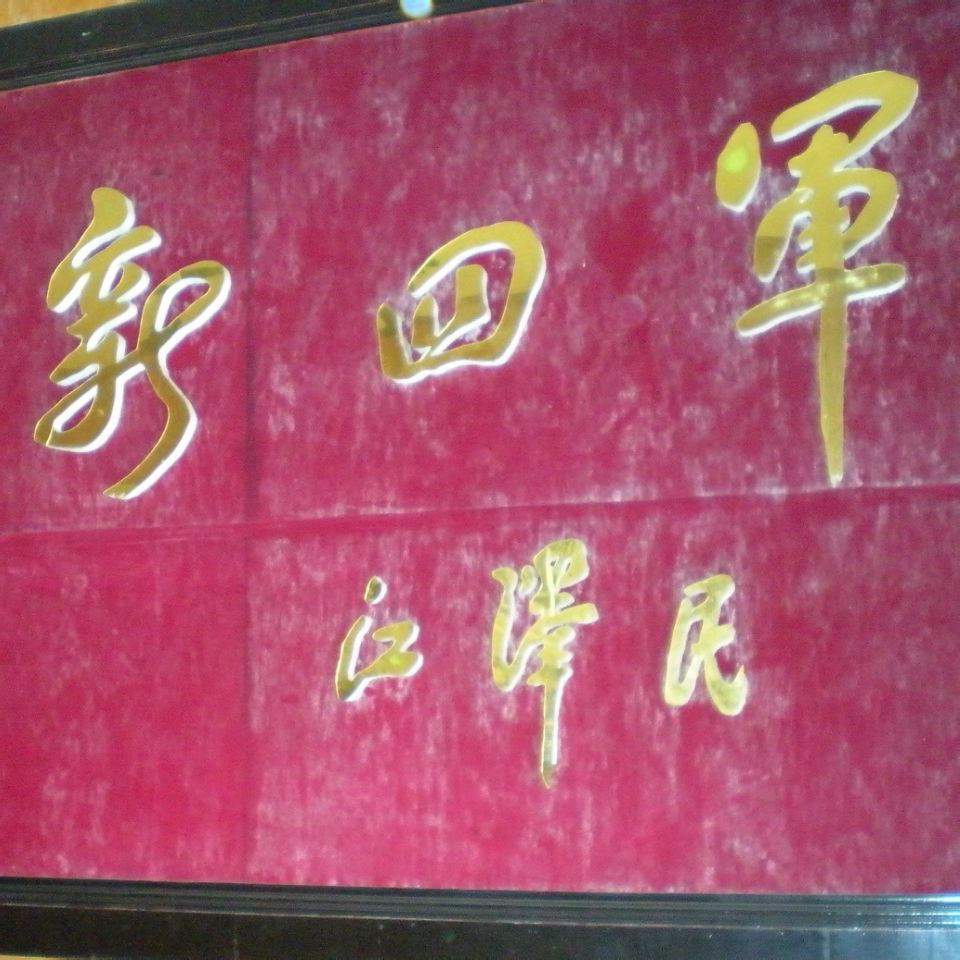 新四軍
江澤民